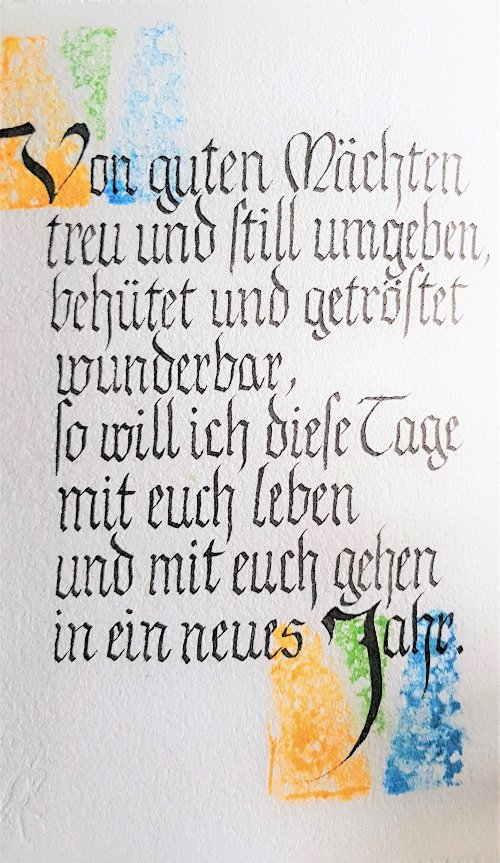 Von guten Mächten
treu und still umgeben,
behütet und getröstet
wunderbar,
so will ich diese Tage
mit euch leben
und mit euch gehen
in ein neues Jahr.